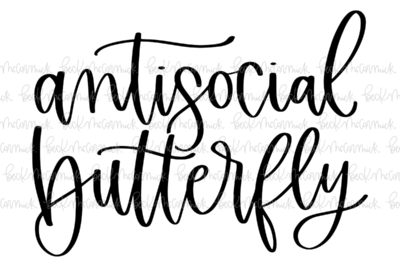 antisocial
butterfly